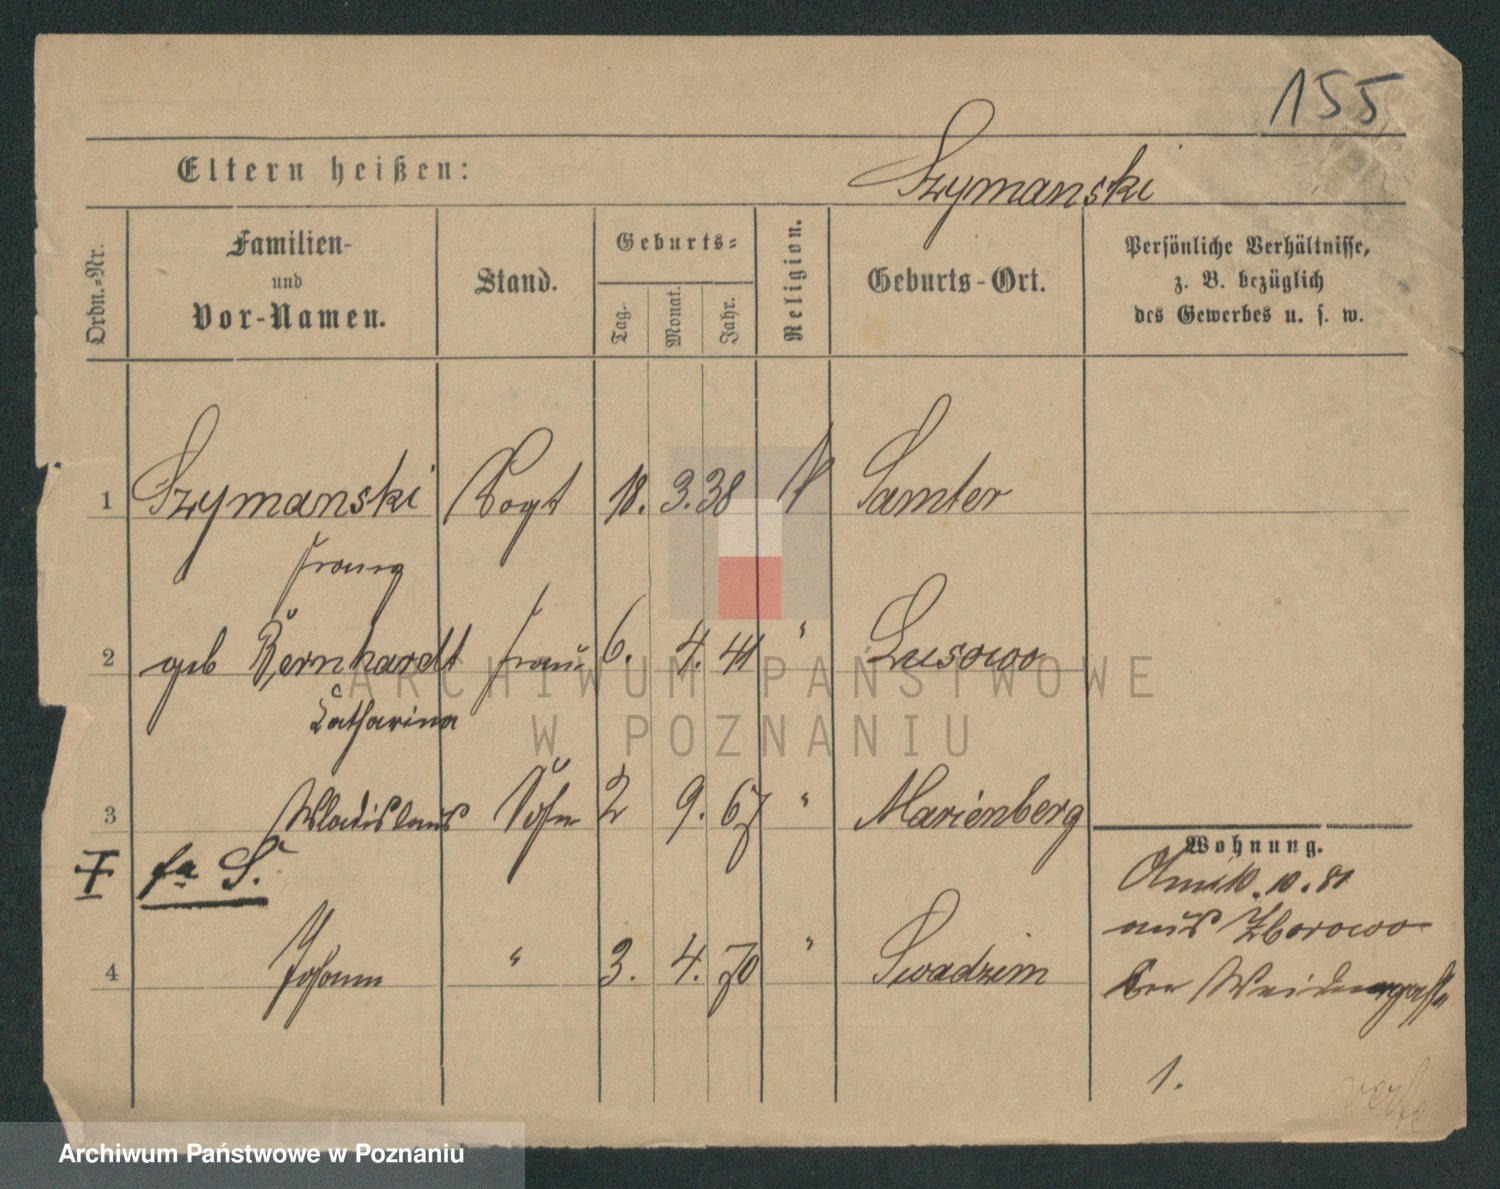 155
Eltern heißen:
Szymanski
Ordn.-Nr.
Familien-
und
Vor-Namen.
Stand.
Geburts-
Tag.
Monat.
Jahr.
Religion.
Geburts-Ort.
Persönliche Verhältnisse,
z. B. bezüglich
des Gewerbes u. s. w.
1 Szymanski Vogt 18. 3. 38 Samter
Franz
2 geb Bernhardt Frau 6. 4. 41 " Lusowo
Catharina
3 Wladislaus Sohn 2 9. 67 " Marienberg
fa S.
Wohnung.
10. 81
aus Zborowo
4 Johann " 3. 4. 70 " Swadzim
1.
ARCHIWUM PAŃSTWOWE
W POZNANIU
Archiwum Państwowe w Poznaniu